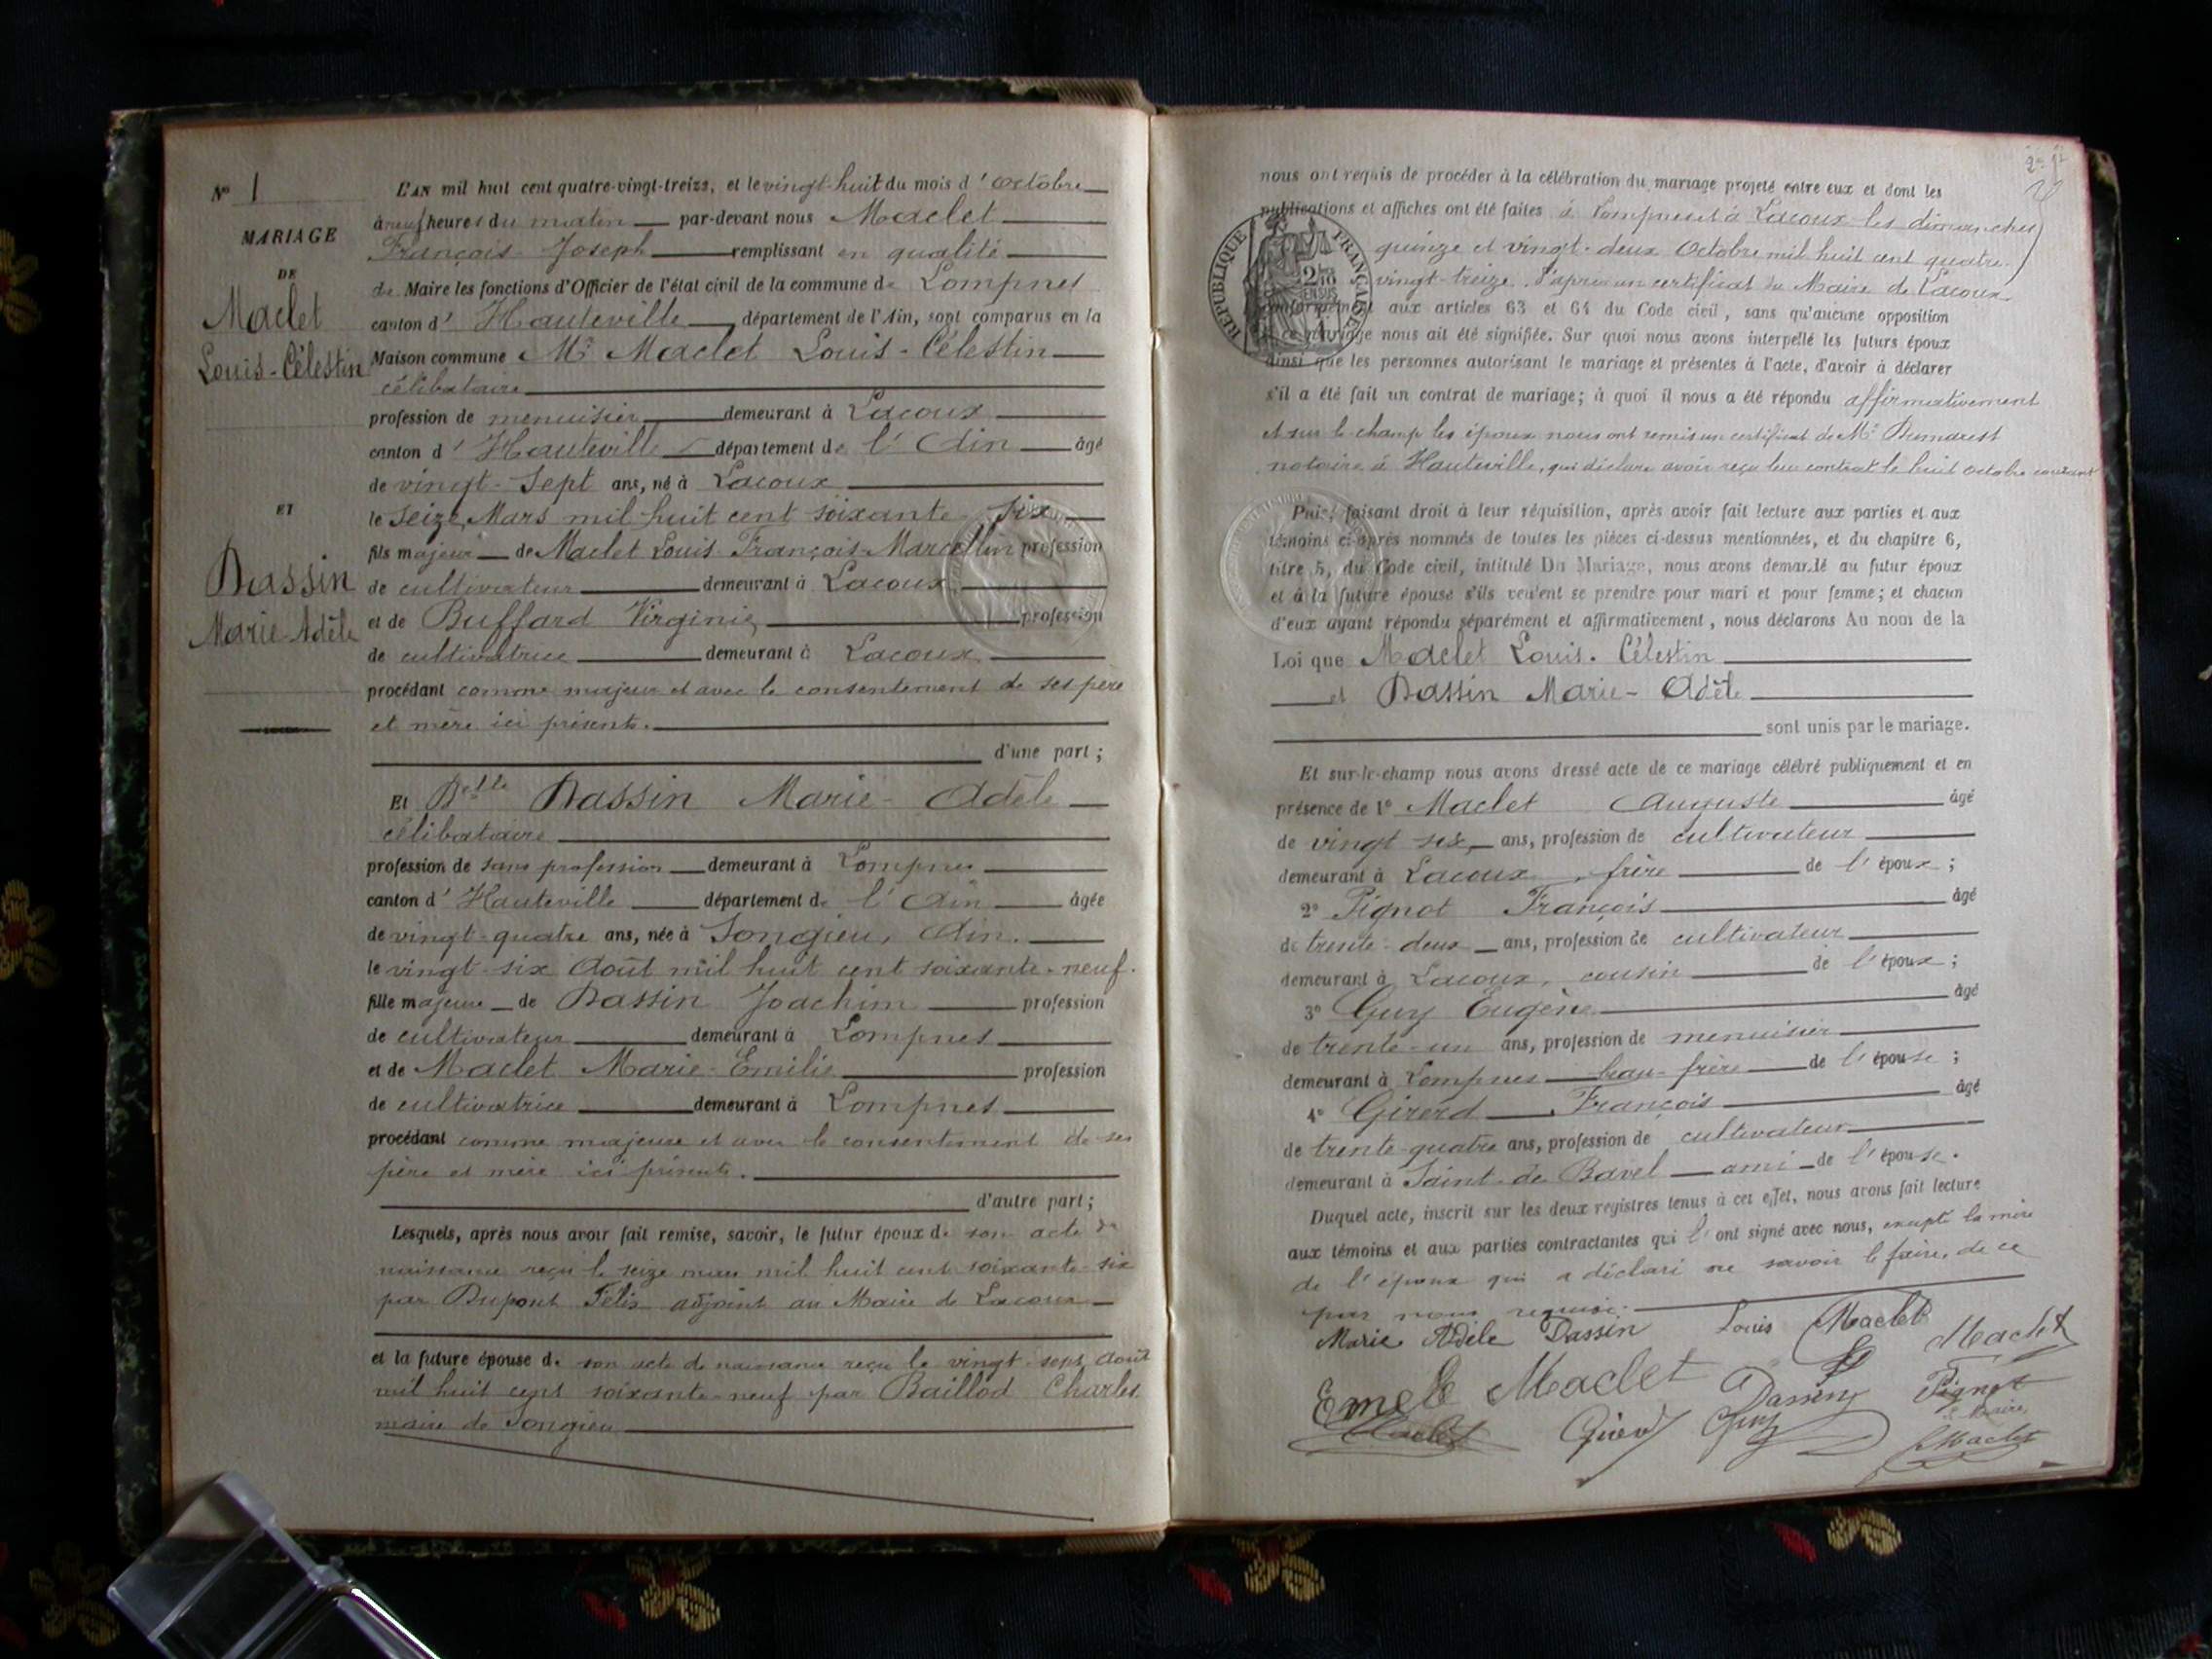 N° 1
MARIAGE
DE
Maclet
Louis-Célestin
ET
Dassin
Marie Adèle
L'AN mil huit cent quatre-vingt-treize, et le vingt-huit du mois d'octobre
à neuf heures du matin par-devant nous Maclet
François-Joseph remplissant en qualité
de Maire les fonctions d'Officier de l'état civil de la commune de Lompnes
canton d'Hauteville, département de l'Ain, sont comparus en la
Maison commune Mr Maclet Louis-Célestin
célibataire
profession de menuisier demeurant à Lacoux
canton d'Hauteville département de l'Ain âgé
de vingt-sept ans, né à Lacoux
le seize Mars mil huit cent soixante six
fils majeur de Maclet Louis François-Marcellin profession
de cultivateur demeurant à Lacoux
et de Buffard Virginie profession
de cultivatrice demeurant à Lacoux
procédant comme majeur et avec le consentement de ses père
et mère ici présents.
d'une part;
Et Delle Dassin Marie-Adèle
célibataire
profession de sans profession demeurant à Lompnes
canton d'Hauteville département de l'Ain âgée
de vingt-quatre ans, née à Songieu, Ain.
le vingt-six Août mil huit cent soixante-neuf.
fille majeure de Dassin Joachim profession
de cultivateur demeurant à Lompnes
et de Maclet Marie-Emilie profession
de cultivatrice demeurant à Lompnes
procédant comme majeure et avec le consentement de ses
père et mère ici présents.
d'autre part;
Lesquels, après nous avoir fait remise, savoir, le futur époux de son acte de
naissance reçu le seize mars mil huit cent soixante-six
par Dupont Félix adjoint au Maire de Lacoux
et la future épouse de son acte de naissance reçu le vingt-sept Août
mil huit cent soixante-neuf par Baillod Charles
maire de Songieu
nous ont requis de procéder à la célébration du mariage projeté entre eux et dont les
publications et affiches ont été faites à Lompnes et à Lacoux les dimanches
quinze et vingt-deux Octobre mil huit cent quatre-
vingt-treize. D'après un certificat du Maire de Lacoux
RÉPUBLIQUE FRANÇAISE
conformément aux articles 63 et 64 du Code civil, sans qu'aucune opposition
à ce mariage nous ait été signifiée. Sur quoi nous avons interpellé les futurs époux
ainsi que les personnes autorisant le mariage et présentes à l'acte, d'avoir à déclarer
s'il a été fait un contrat de mariage; à quoi il nous a été répondu affirmativement
et sur le champ les époux nous ont remis un certificat de Me Dumarest
notaire à Hauteville, qui déclare avoir reçu leur contrat le huit octobre courant
Puis, faisant droit à leur réquisition, après avoir fait lecture aux parties et aux
témoins ci-après nommés de toutes les pièces ci-dessus mentionnées, et du chapitre 6,
titre 5, du Code civil, intitulé Du Mariage, nous avons demandé au futur époux
et à la future épouse s'ils veulent se prendre pour mari et pour femme; et chacun
d'eux ayant répondu séparément et affirmativement, nous déclarons Au nom de la
Loi que Maclet Louis-Célestin
et Dassin Marie-Adèle
sont unis par le mariage.
Et sur-le-champ nous avons dressé acte de ce mariage célébré publiquement et en
présence de 1° Maclet Auguste âgé
de vingt six ans, profession de cultivateur
demeurant à Lacoux, frère de l'époux;
2° Pignot François âgé
de trente-deux ans, profession de cultivateur
demeurant à Lacoux, cousin de l'époux;
3° Guy Eugène âgé
de trente-un ans, profession de menuisier
demeurant à Lompnes beau-frère de l'épouse;
4° Girerd François âgé
de trente-quatre ans, profession de cultivateur
demeurant à Saint-de Bavel ami de l'épouse.
Duquel acte, inscrit sur les deux registres tenus à cet effet, nous avons fait lecture
aux témoins et aux parties contractantes qui l'ont signé avec nous, excepté la mère
de l'époux qui a déclaré ne savoir le faire, de ce
par nous requise.
Marie Adèle Dassin Louis Maclet Maclet
Maclet Dassin Pignot
Girerd Guy le Maire,
Maclet